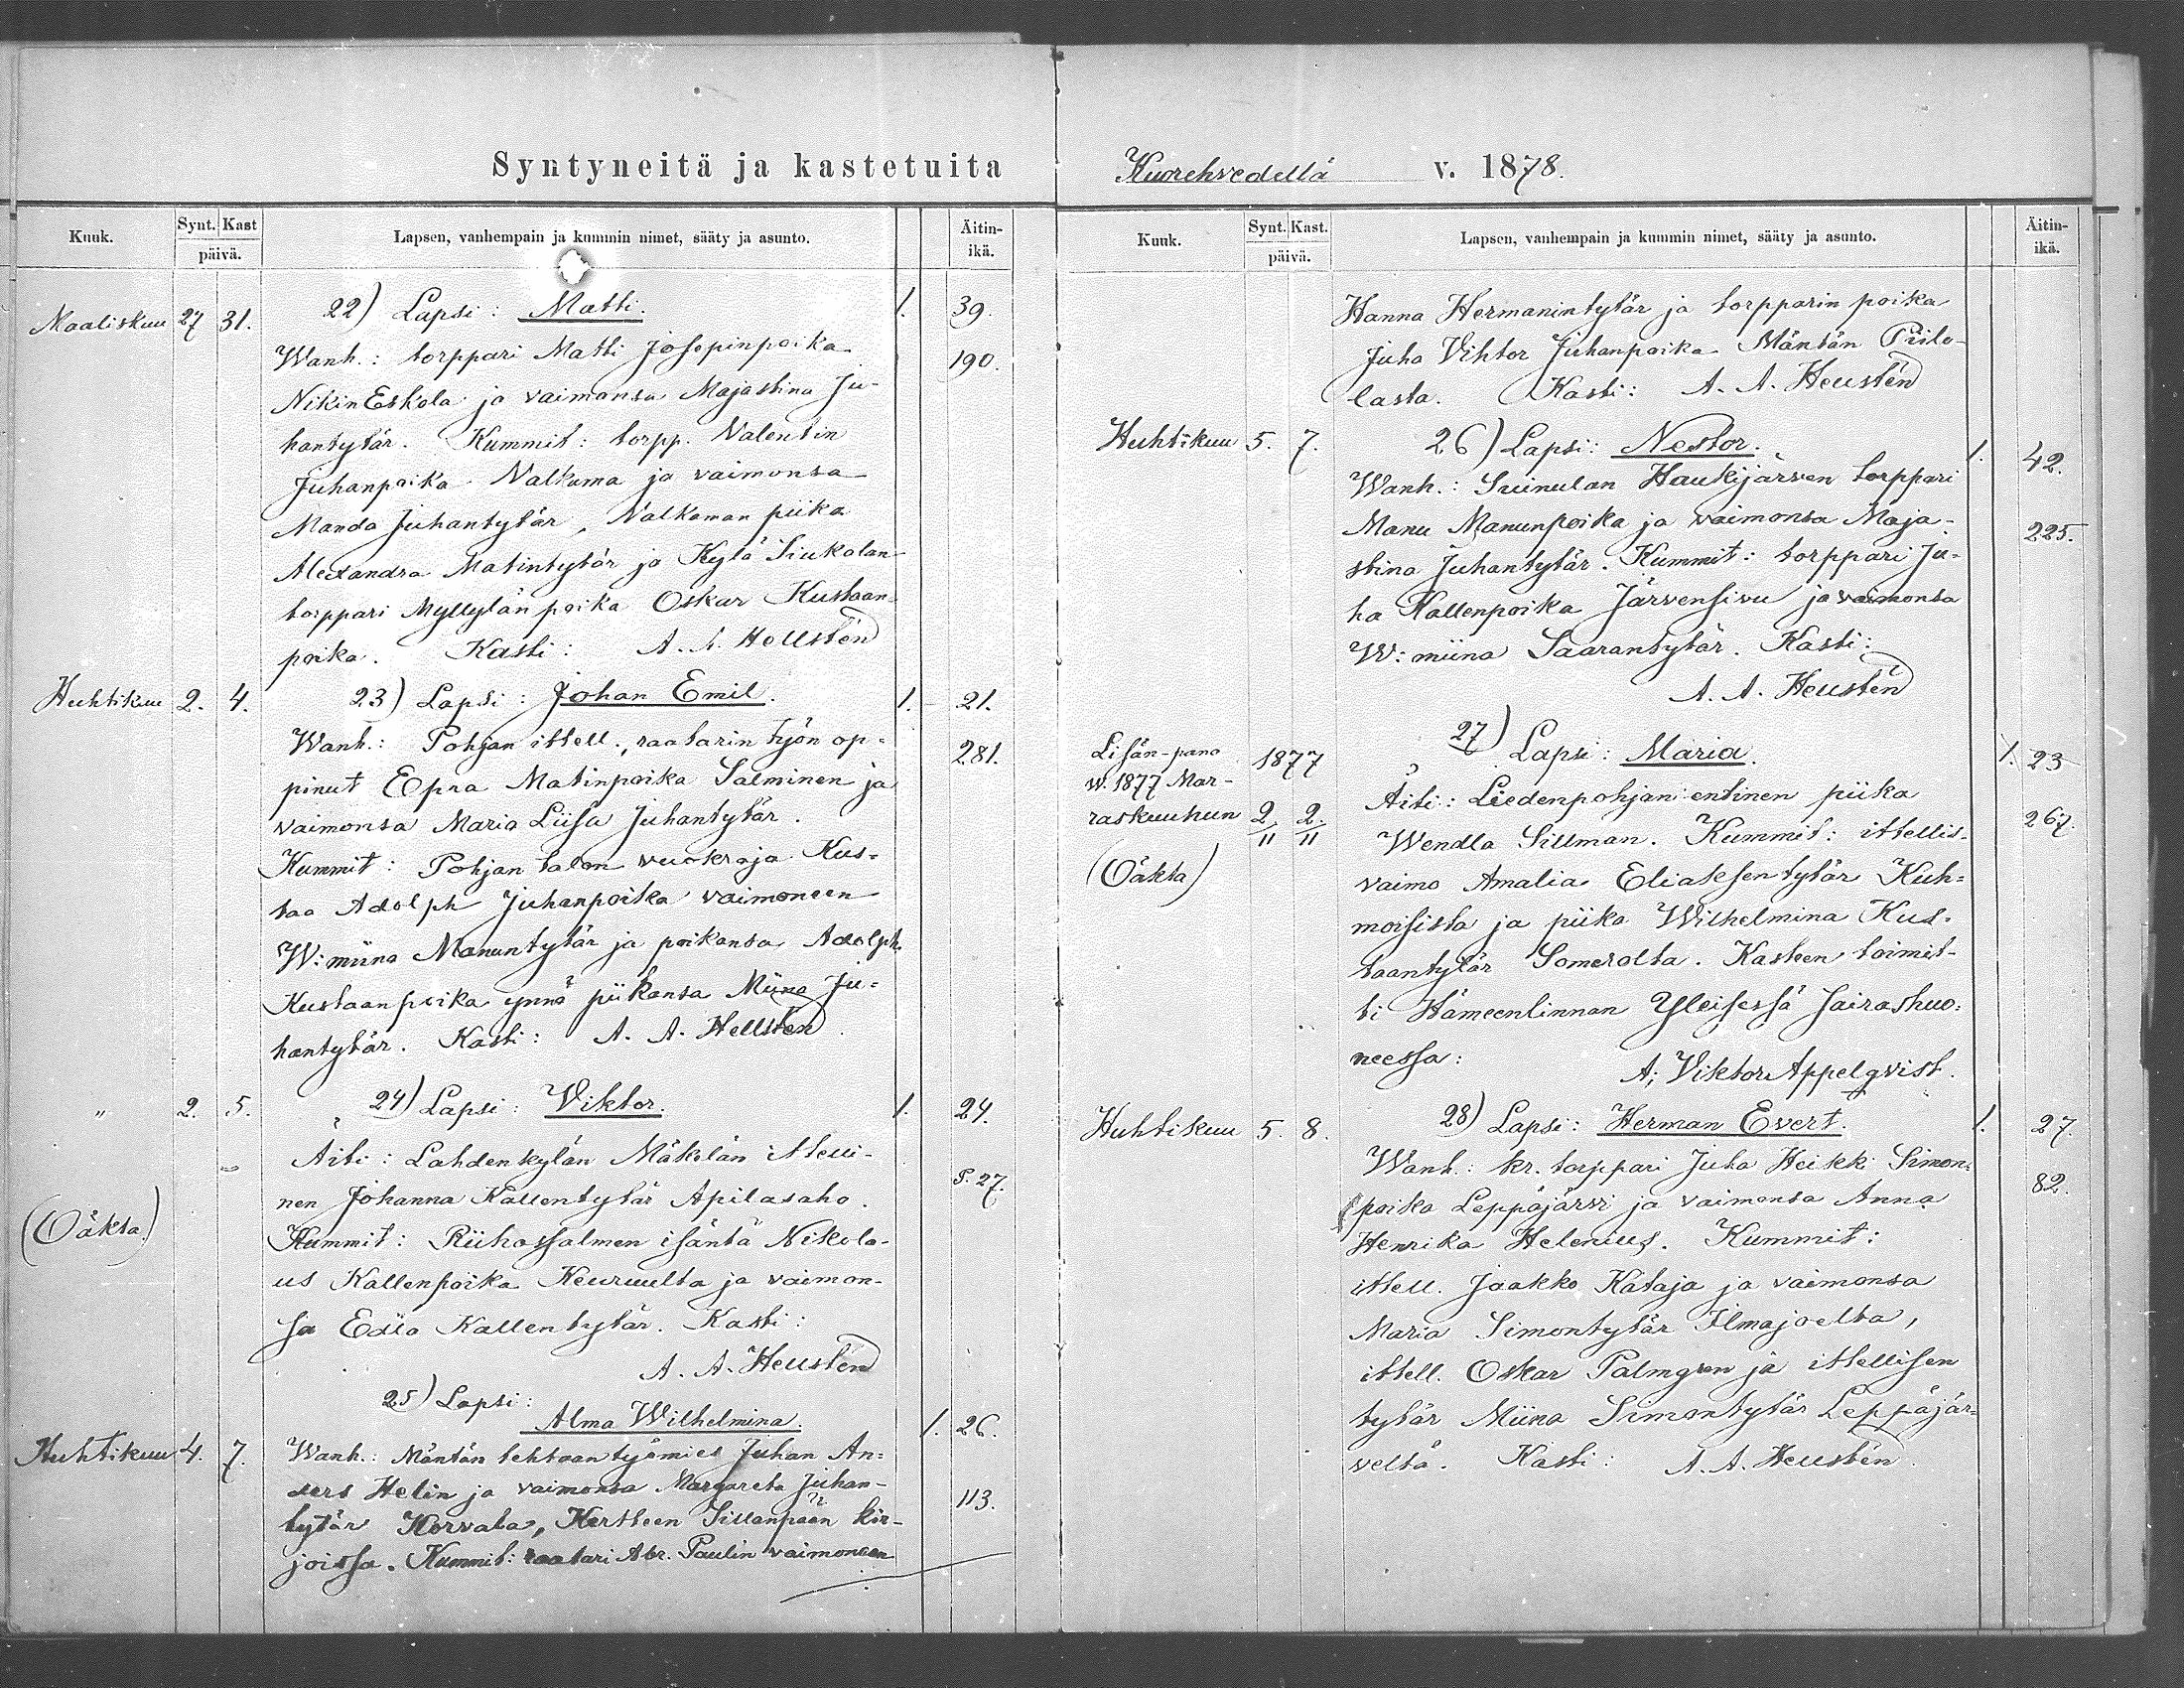 Syntyneitä ja kastetuita
Kuuk. Synt. Kast päivä. Lapsen, vanhempain ja kummin nimet, sääty ja asunto. Äitin-ikä.
Maaliskuu 27 31. 22) Lapsi: Matti. 1. 39.
Wanh.: torppari Matti Josepinpoika 190.
NikinEskola ja vaimonsa Majastina Ju-
hantytär. Kummit: torpp. Valentin
Juhanpoika Valkama ja vaimonsa
Manda Juhantytär, Valkaman piika
Alexandra Matintytär ja Kylä Siukolan
torppari Myllylän poika Oskar Kustaan
poika. Kasti: A. A. Hellstén
Huhtikuu 2. 4. 23) Lapsi: Johan Emil. 1. 21.
Wanh.: Pohjan ittell., raatarin työn op= 281.
pinut Epra Matinpoika Salminen ja
vaimonsa Maria Liisa Juhantytär.
Kummit: Pohjan talon vuokraja Kus=
taa Adolph Juhanpoika vaimoneen
W:miina Manuntytär ja poikansa Adolph
Kustaanpoika ynnä piikansa Miina Ju=
hantytär. Kasti: A. A. Hellstén
" 2. 5. 24) Lapsi: Viktor. 1. 24.
Äiti: Lahdenkylän Mäkelän ittelli-
nen Johanna Kallentytär Apilasaho. S. 27.
(Oäkta) Kummit: Riihossalmen isäntä Nikola-
us Kallenpoika Keuruulta ja vaimon-
sa Edla Kallentytär. Kasti:
A. A. Hellstén
25) Lapsi:
Alma Wilhelmina. 1. 26.
Huhtikuu 4. 7. Wanh.: Mäntän tehtaan työmies Juhan An=
ders Helin ja vaimonsa Margareta Juhan- 113.
tytär Horvala, Kertteen Sillanpään kir-
joissa. Kummit: raatari Abr. Paulin vaimoneen
Kuorehvedellä v. 1878.
Kuuk. Synt. Kast. päivä. Lapsen, vanhempain ja kummin nimet, sääty ja asunto. Äitin-ikä.
Hanna Hermanintytär ja torpparin poika
Juha Vihtor Juhanpoika Mäntän Piilo-
lasta. Kasti: A. A. Hellstén
Huhtikuu 5. 7. 26) Lapsi: Nestor. 1. 42.
Wanh.: Suinulan Haukijärven torppari
Manu Manunpoika ja vaimonsa Maja- 225.
stina Juhantytär. Kummit: torppari Ju=
ha Kallenpoika Järvensivu ja vaimonsa
W:miina Saarantytär. Kasti:
A. A. Hellstén
27) Lapsi: Maria. 1. 23
Lisän-pano 1877
w. 1877 Mar-
raskuuhun 2/11 2./11
(Oäkta)
Äiti: Liedenpohjan entinen piika
Wendla Sillman. Kummit: ittellis- 267.
vaimo Amalia Eliaksentytär Kuh=
moisista ja piika Wilhelmina Kus-
taantytär Somerolta. Kasteen toimit-
ti Hämeenlinnan Yleisessä sairashuo=
neessa: A. Viktor Appelqvist.
Huhtikuu 5. 8. 28) Lapsi: Herman Evert. 1. 27.
Wanh.: kr. torppari Juha Heikki Simon=
poika Leppäjärvi ja vaimonsa Anna 82.
Henrika Helenius. Kummit:
ittell. Jaakko Kataja ja vaimonsa
Maria Simontytär Ilmajoelta,
ittell. Oskar Palmgren ja ittellisen
tytär Miina Simontytär Leppäjär=
veltä. Kasti: A. A. Hellstén